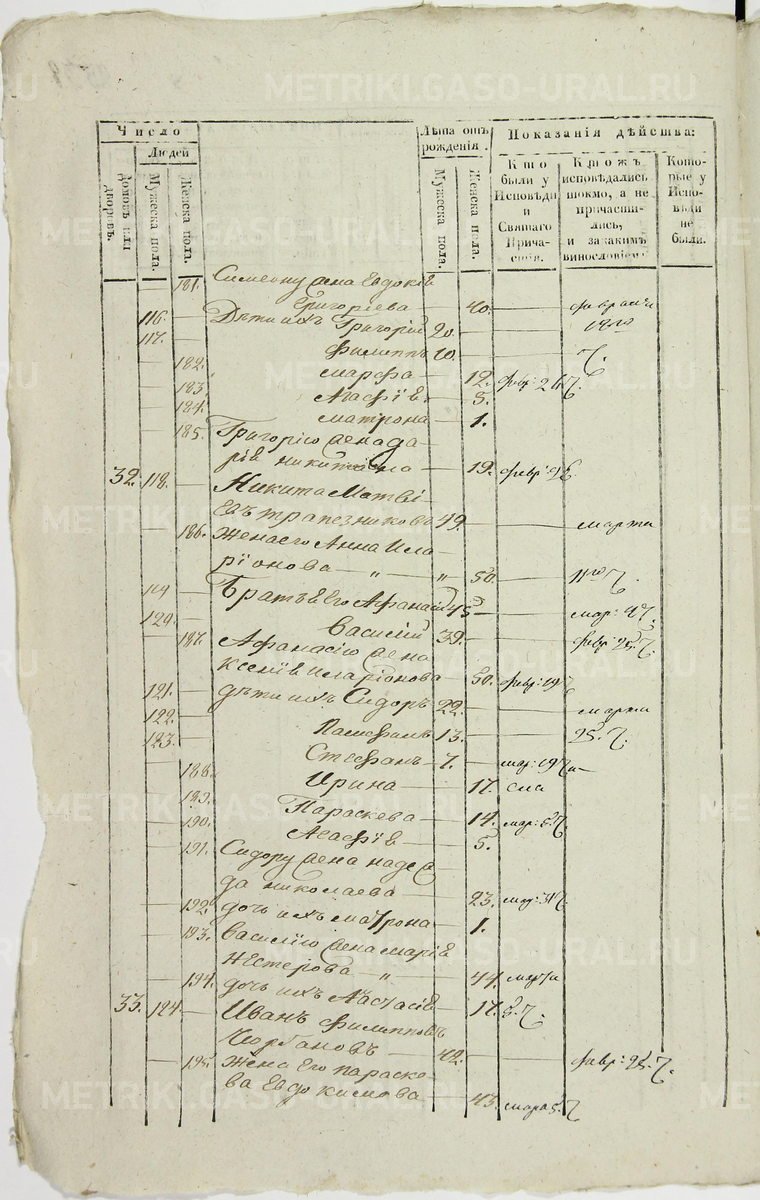 METRIKI.GASO-URAL.RU
Число
Людей
Домовъ или дворовъ.
Мужеска пола.
Женска пола.
Лѣта отъ рожденія.
Мужеска пола.
Женска пола.
Показанія дѣйства:
Кто были у Исповѣди и Святаго Причастія.
Ктожъ исповѣдались токмо, а не причастились, и за какимъ винословіемъ.
Которые у Исповѣди не были.
181. Симеону жена Евдокія
Григорьева 40. февраля
116. Дѣти ихъ Григорій 20. 19го
117. Филиппъ 10. Ч.
182. Марфа 12. февр: 26 Ч.
183 Агафія 5.
184. Матрона 1.
185. Григорію жена Да-
рія Никитина 19. февр: 26
32. 118. Никита Матвѣ-
евъ Трапезниковъ 49. марта
186. Жена его Анна Ила-
ріонова „ „ 50. 11го Ч.
119 Братья Его Афанасій 45 мар: 4 Ч.
120. Василій 39. февр: 25. Ч.
187. Афанасію жена
Ксенія Иларіонова 50. февр: 19 Ч
121. дѣти ихъ Сидоръ 22. марта
122. 13. 25. Ч.
123. Стефанъ 7. мар: 19 Ч
188. Ирина 17.
189. Параскева 14. мар: 5 Ч.
190. Агафія 5.
191. Сидору жена Надеж-
да Николаева 23. мар:
192. дочь ихъ Матрона 1.
193. Василію жена Марія
Нестерова „ 44. марта
194. дочь ихъ Настасія 17. 5. Ч.
33. 124. Иванъ Филипповъ
Чюрбановъ 42. февр: 25. Ч.
195. Жена Его Параске-
ва Евдокимова 43. мар: 5. Ч